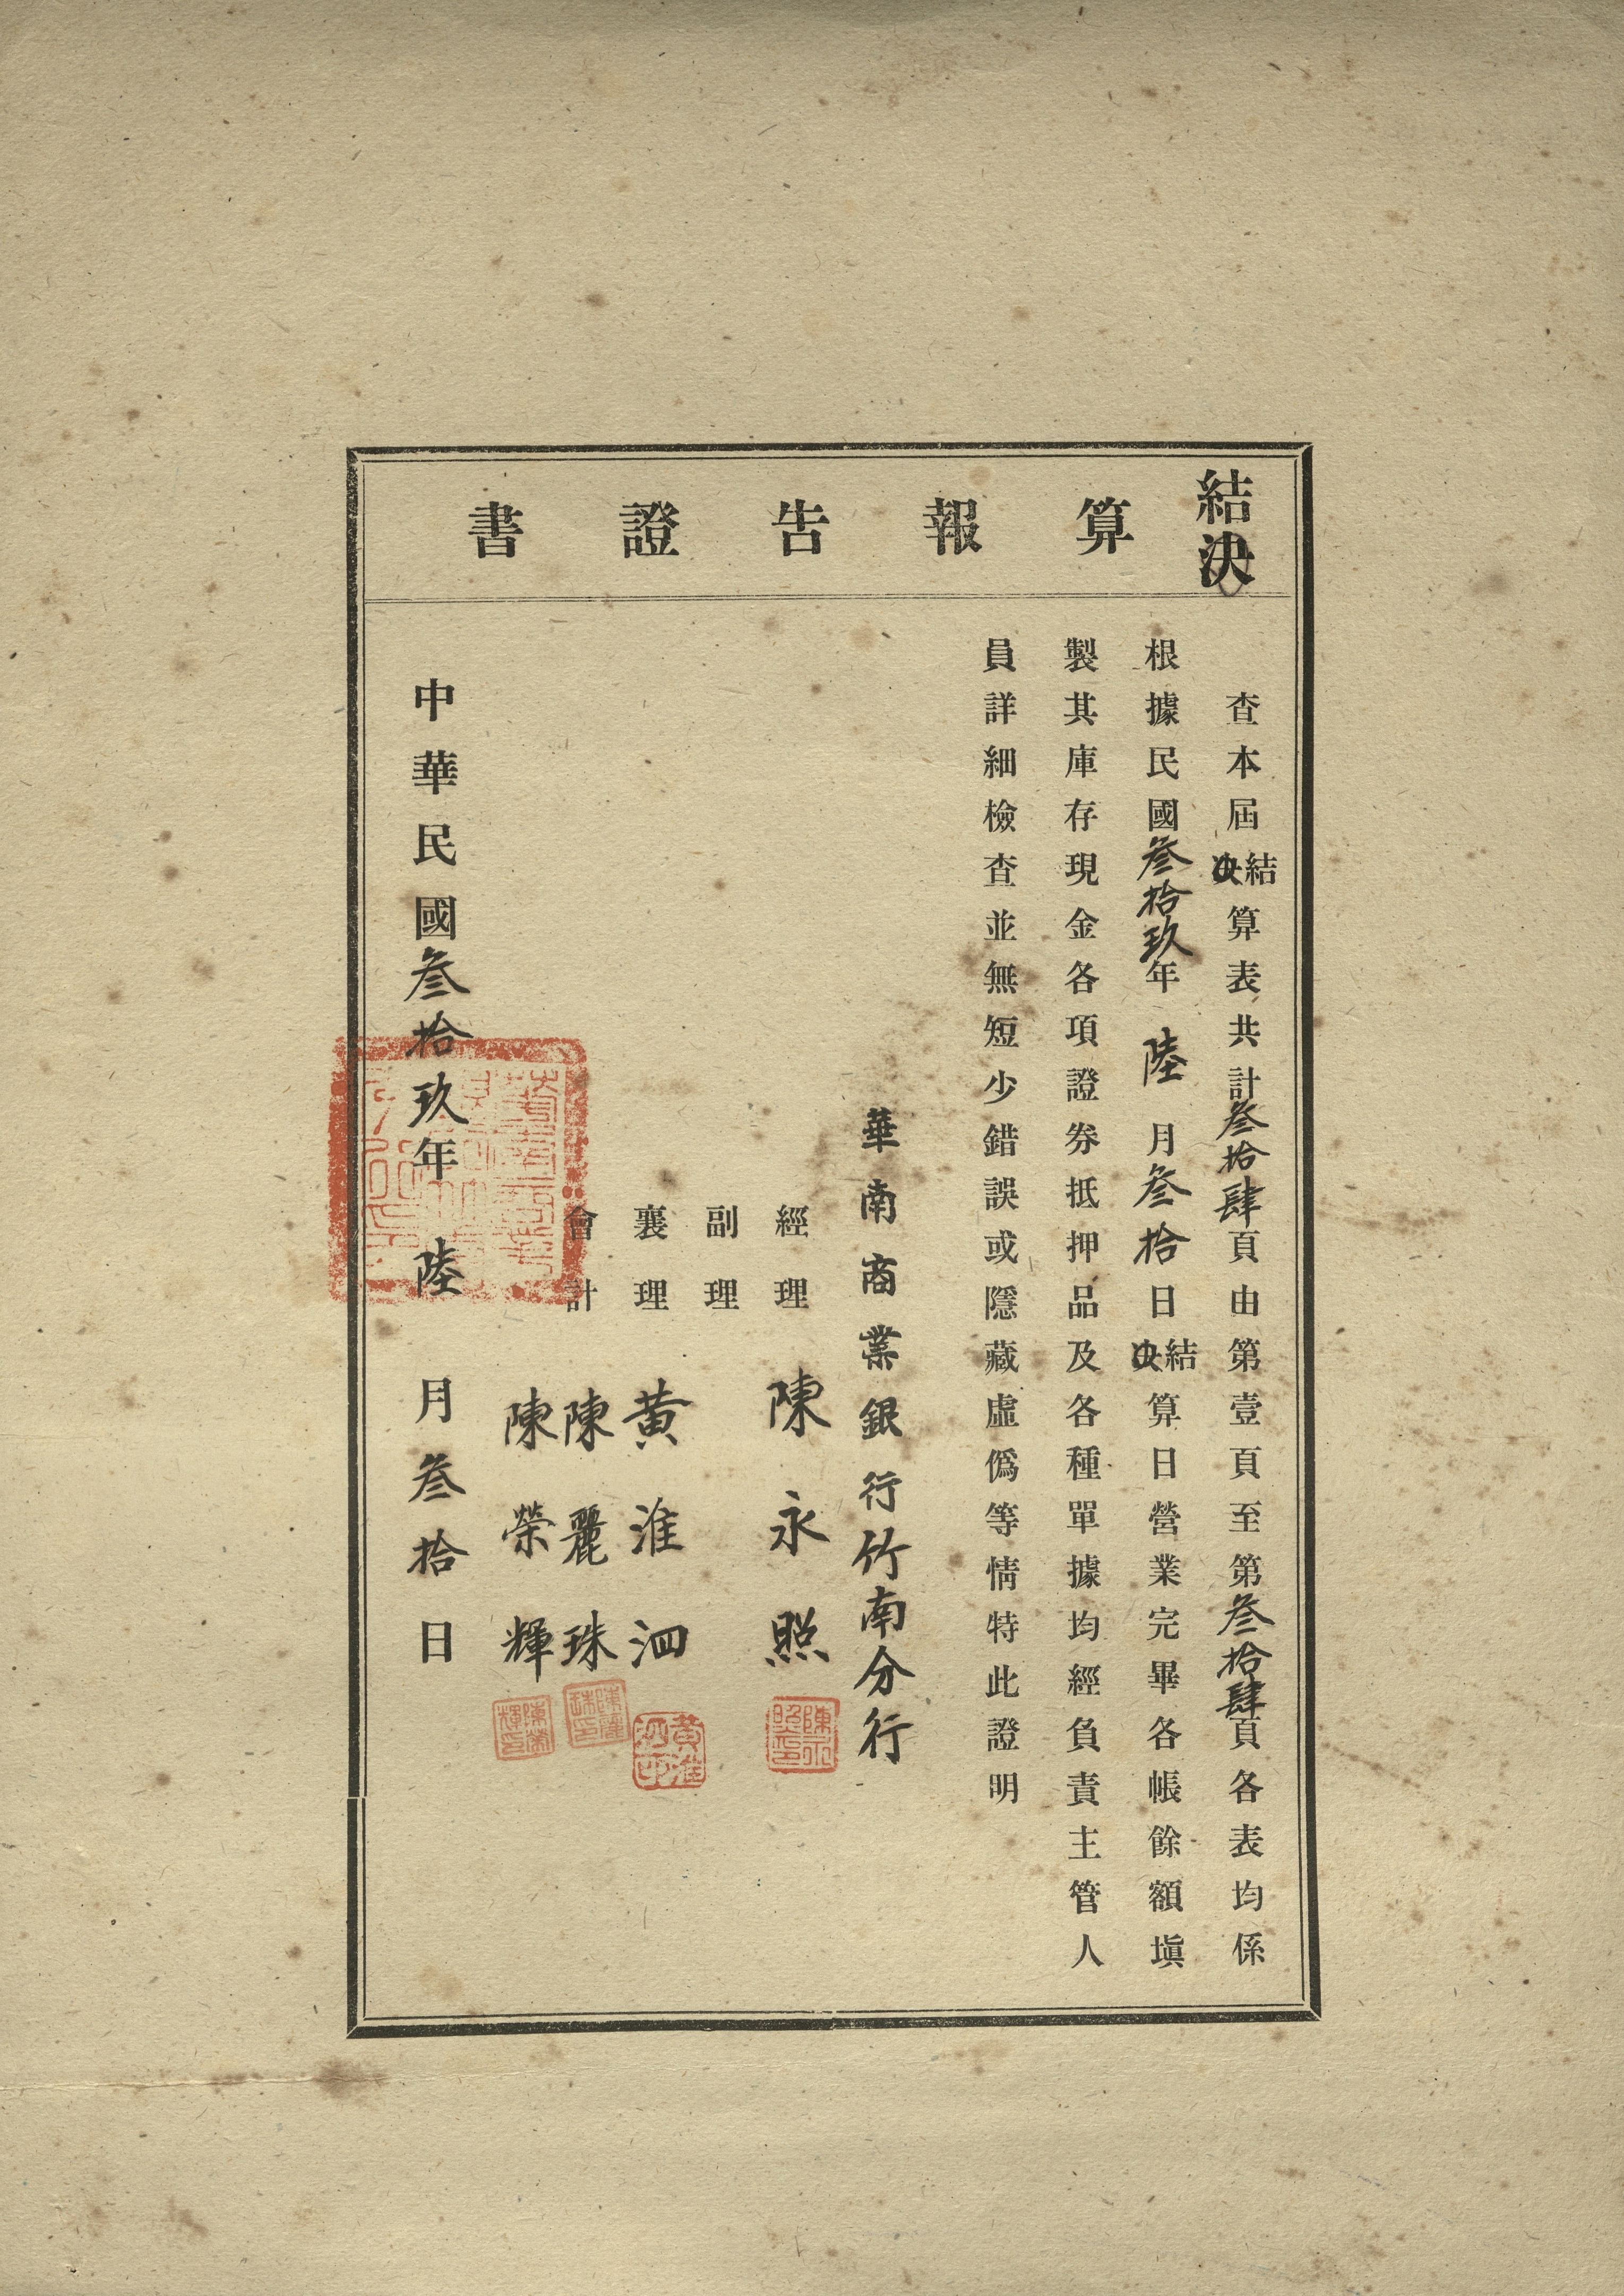 結決算報告證書
查本屆結決算表共計叁拾肆頁由第壹頁至第叁拾肆頁各表均係
根據民國叁拾玖年陸月叁拾日結決算日營業完畢各帳餘額塡
製其庫存現金各項證券抵押品及各種單據均經負責主管人
員詳細檢查並無短少錯誤或隱藏虛僞等情特此證明
華南商業銀行竹南分行
經理 陳永照
副理
襄理 黃淮泗
會計 陳麗珠
陳榮輝
中華民國叁拾玖年陸月叁拾日